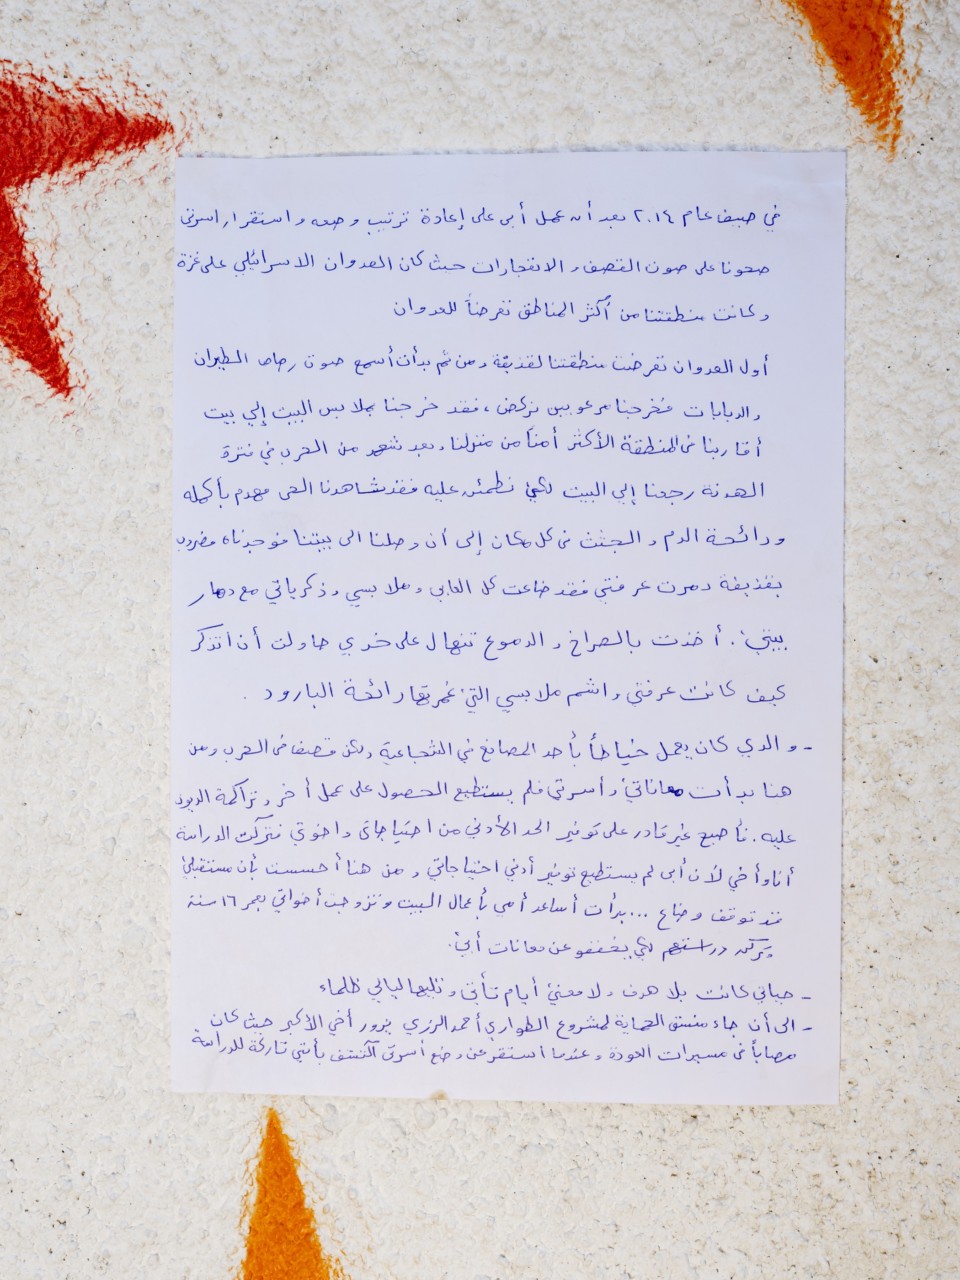 في صيف عام ٢٠١٤ بعد أن عمل أبي على إعادة ترتيب وضعه واستقرار اسرتي
صحونا على صوت القصف والانفجارات حيث كان العدوان الاسرائيلي على غزة
وكانت منطقتنا من أكثر المناطق تعرضاً للعدوان
أول العدوان تعرضت منطقتنا لقذيفة ومن ثم بدأت أسمع صوت رصاص الطيران
والدبابات فخرجنا مرعوبين نركض، فقد خرجنا بملابس البيت إلي بيت
أقاربنا في المنطقة الأكثر أمناً من منزلنا وبعد شهر من الحرب في فترة
الهدنة رجعنا إلي البيت لكي نطمئن عليه فقد شاهدنا الحي مهدم بأكمله
ورائحة الدم والجثث في كل مكان إلى أن وصلنا الى بيتنا فوجدناه مضروب
بقذيفة دمرت غرفتي فقد ضاعت كل العابي وملابسي وذكرياتي مع دمار
بيتي. أخذت بالصراخ والدموع تنهال على خدي حاولت أن اتذكر
كيف كانت غرفتي واشم ملابسي التي غمرتها رائحة البارود .
- والدي كان يعمل خياطاً بأحد المصانع في الشجاعية ولكن قصف في الحرب ومن
هنا بدأت معاناتي وأسرتي فلم يستطيع الحصول على عمل أخر وتراكمة الديون
عليه. فأصبح غير قادر على توفير الحد الأدني من احتياجاتي واخوتي فتركت الدراسة
أنا وأخي لأن أبي لم يستطيع توفير أدني احتياجاتي ومن هنا أحسست بأن مستقبلي
قد توقف وضاع ... بدأت أساعد أمي بأعمال البيت وتزوجت أخواتي بعمر ١٦ سنة
وتركن دراستهم لكي يخففو عن معانات أبي.
- حياتي كانت بلا هدف ولا معني أيام تأتي وتليها ليالي ظلماء
- الى أن جاء منسق الحماية لمشروع الطوارئ أحمد الرزي يزور أخي الأكبر حيث كان
مصاباً في مسيرات العودة وعندما استفقر عن وضع أسرتي اكتشف بأنني تاركة للدراسة